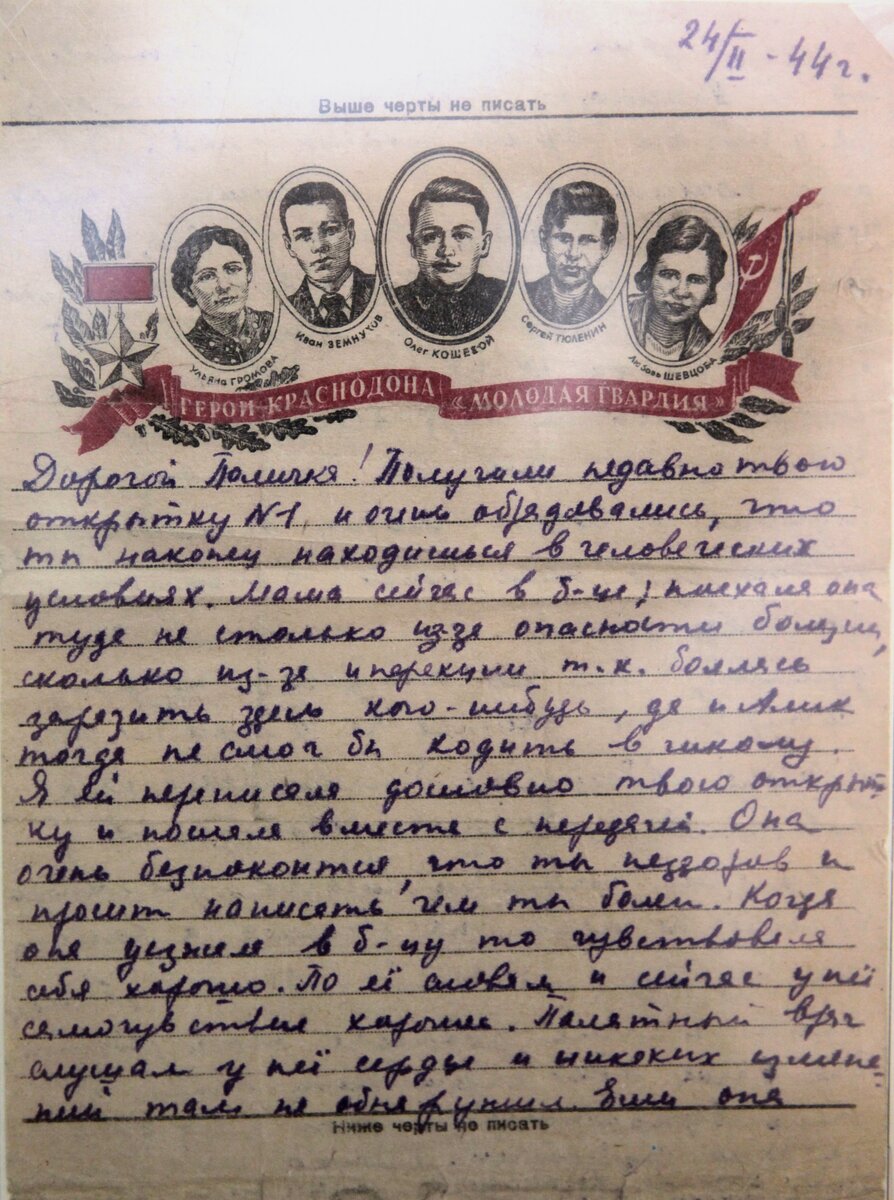 24/II - 44г.
Выше черты не писать
Ульяна ГРОМОВА
Иван ЗЕМНУХОВ
Олег КОШЕВОЙ
Сергей ТЮЛЕНИН
Любовь ШЕВЦОВА
ГЕРОИ КРАСНОДОНА «МОЛОДАЯ ГВАРДИЯ»
Дорогой Паличка! Получили недавно твою
открытку N1, и очень обрадовались, что
ты наконец находишься в человеческих
условиях. Мама сейчас в б-це; поехала она
туда не столько из-за опасности болезни,
сколько из-за инфекции т.к. боялась
заразить здесь кого-нибудь, да и Алик
тогда не смог бы ходить в школу.
Я ей переписала дословно твою открыт-
ку и послала вместе с передачей. Она
очень безпокоится, что ты нездоров и
просит написать чем ты болен. Когда
она уезжала в б-цу то чувствовала
себя хорошо. По её словам и сейчас у неё
самочувствие хорошее. Палатный врач
слушал у неё сердце и никаких измене-
ний там не обнаружил. Если она
Ниже черты не писать